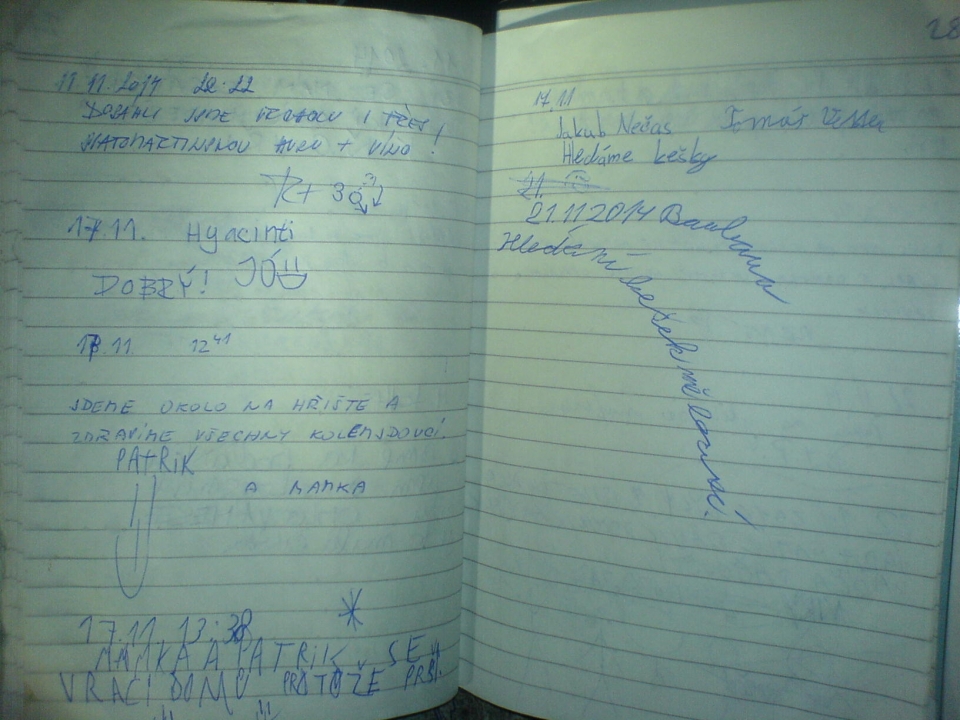 11.11.2014 22:22
DOŠÁHLI JSME VRCHOLU I PŘES
SVATOMARTINSKOU HUSU + VÍNO!
17.11. Hyacinti
DOBRÝ! JÓ
17.11. 12 41
JDEME OKOLO NA HŘIŠTĚ A
ZDRAVÍME VŠECHNY KOLEMJDOUCÍ.
PATRIK
A MAMKA
17.11. 13:38
MAMKA A PATRIK SE
VRACÍ DOMŮ PROTOŽE PRŠÍ.
28
17.11
Jakub Nečas Tomáš
Hledáme kešky
21.
21.11 2014 Barbara
Hledání kešek mě baví!